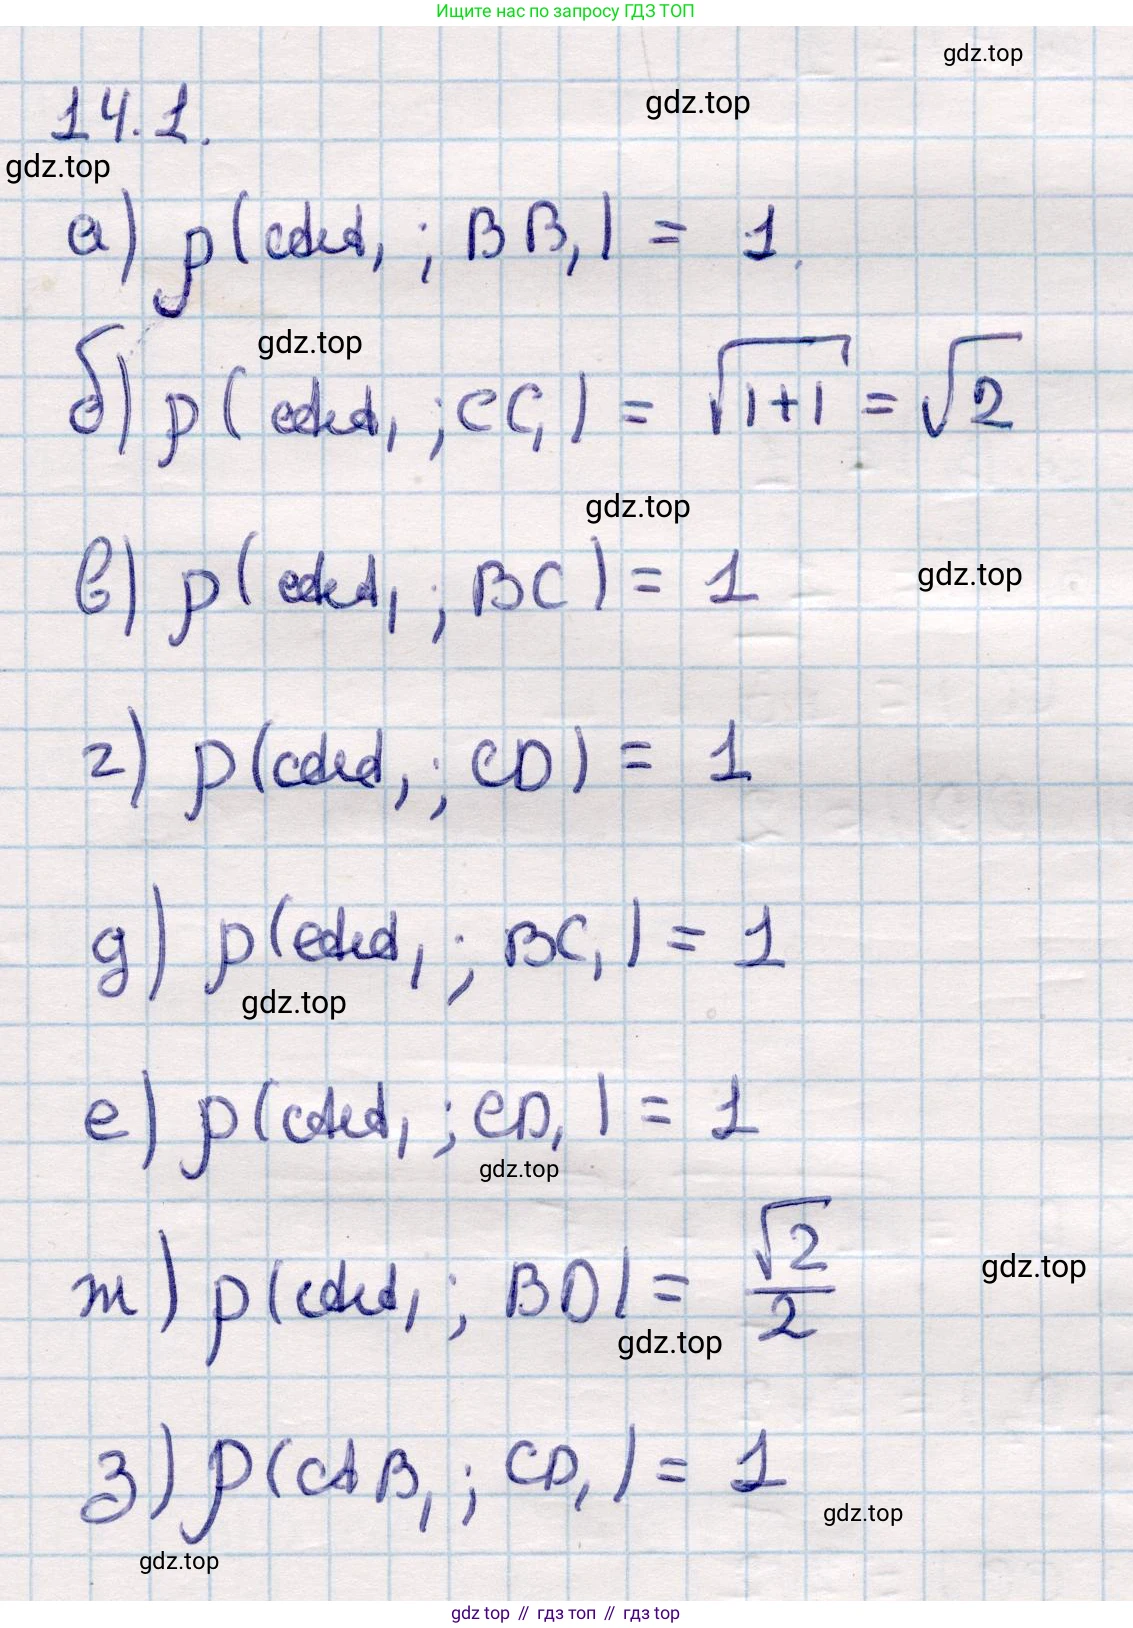 Ищите нас по запросу ГДЗ ТОП
gdz.top
14.1.
gdz.top
gdz.top
а) ρ(AA₁; BB₁) = 1.
gdz.top
б) ρ(AA₁; CC₁) = √1+1 = √2
gdz.top
в) ρ(AA₁; BC) = 1
gdz.top
г) ρ(AA₁; CD) = 1
д) ρ(AA₁; BC₁) = 1
gdz.top
е) ρ(AA₁; CD₁) = 1
gdz.top
ж) ρ(AA₁; BD) = √2/2
gdz.top
gdz.top
з) ρ(AB₁; CD₁) = 1
gdz.top
gdz.top
gdz top // гдз топ // гдз top